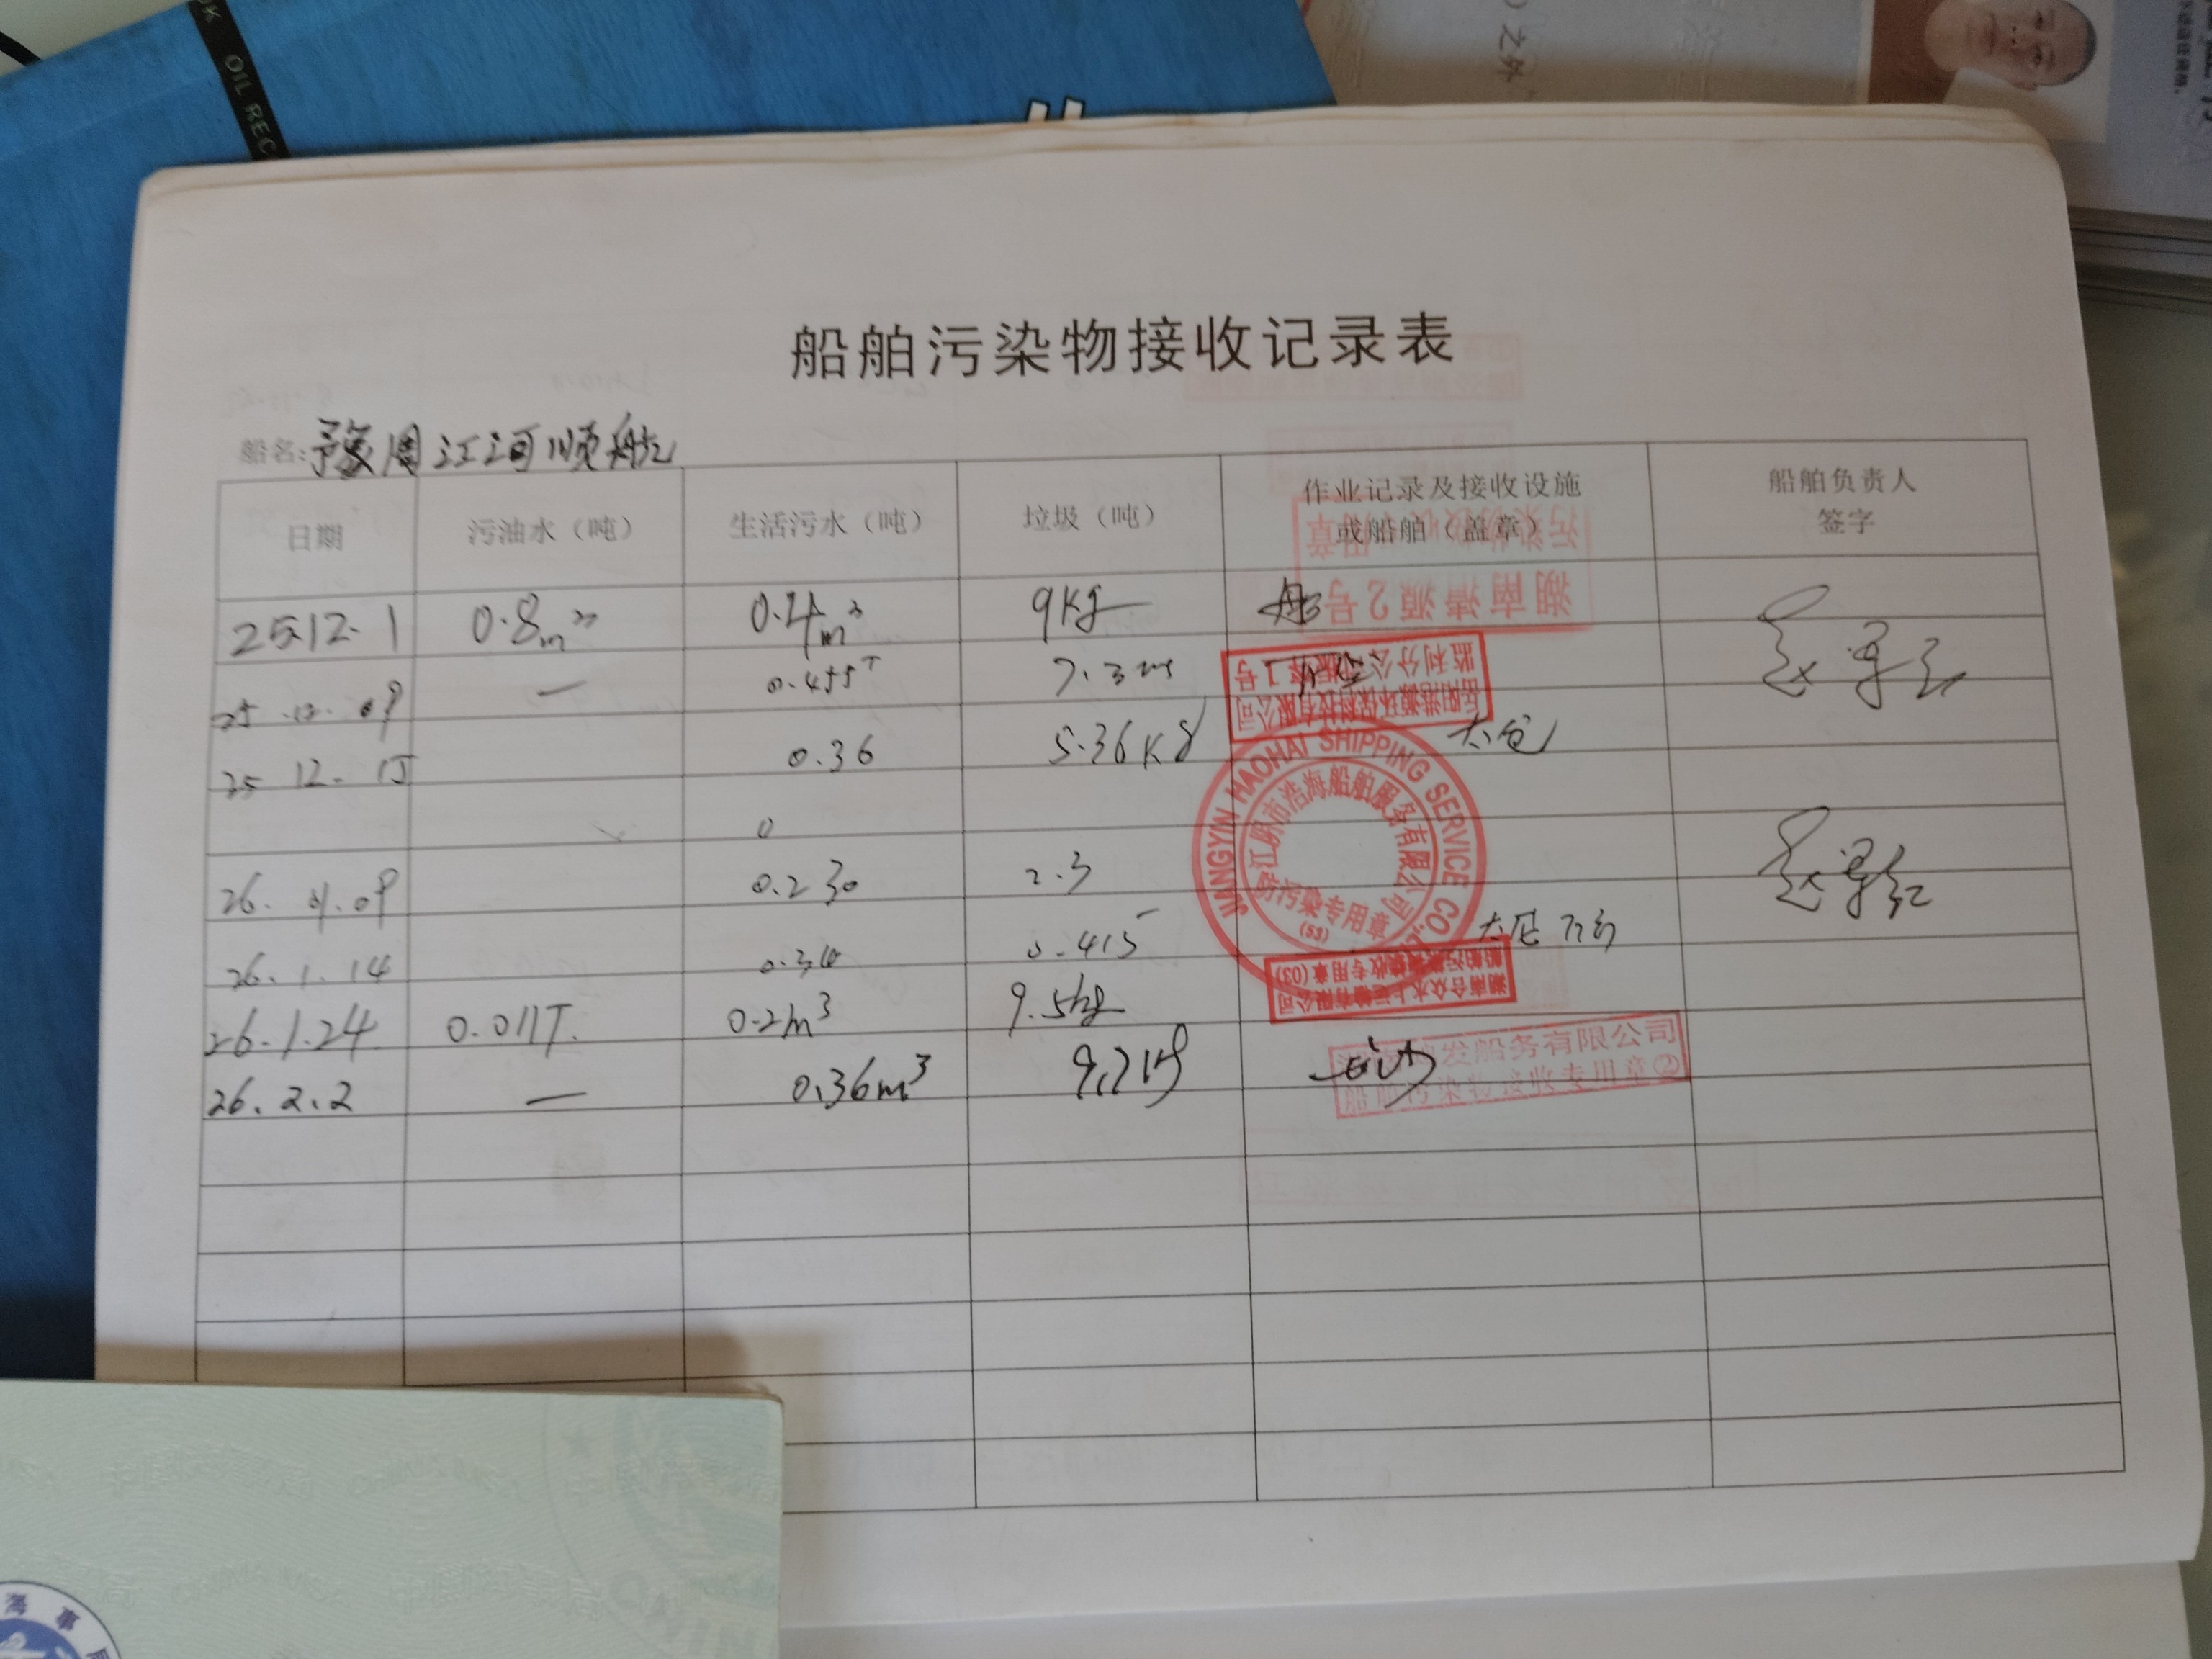 OIL REC
之外
船舶污染物接收记录表
船名: 豫周江河顺航
日期 污油水（吨） 生活污水（吨） 垃圾（吨） 作业记录及接收设施或船舶（盖章） 船舶负责人签字
25.12.1 0.8m³ 0.4m³ 9Kg 船
湖南清源2号
25.12.09 — 0.455T 7.3
监利分公司
1号
岳阳港源环保科技有限公司
25 12. 15 0.36 5.36Kg 太仓
JIANGYIN HAOHAI SHIPPING SERVICE CO.
江阴市浩海船舶服务有限公司
防污染专用章
(53)
0
26. 01.09 0.230 2.3
26.1.14 0.34 0.415
湖南合众水上运输有限公司
接收专用章(03)
26.1.24. 0.011T. 0.2m³ 9.5kg
26.2.2 — 0.36m³ 9.2kg
发船务有限公司
船舶污染物接收专用章②
海事局